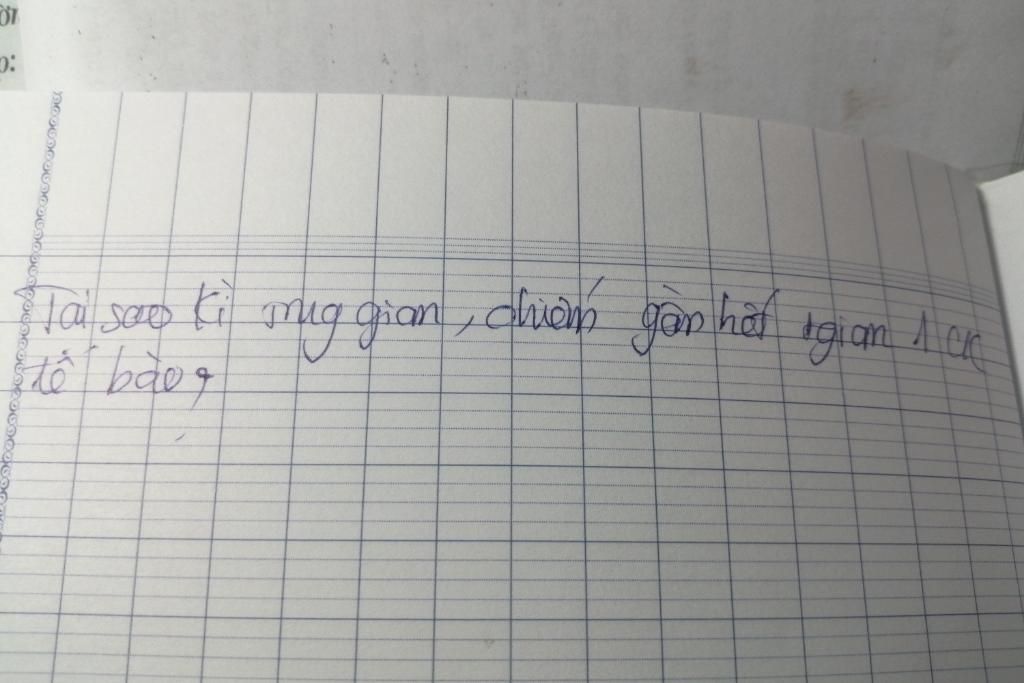 ời
o:
Tại sao kì trung gian, chiếm gần hết tgian 1 ck
tế bào?